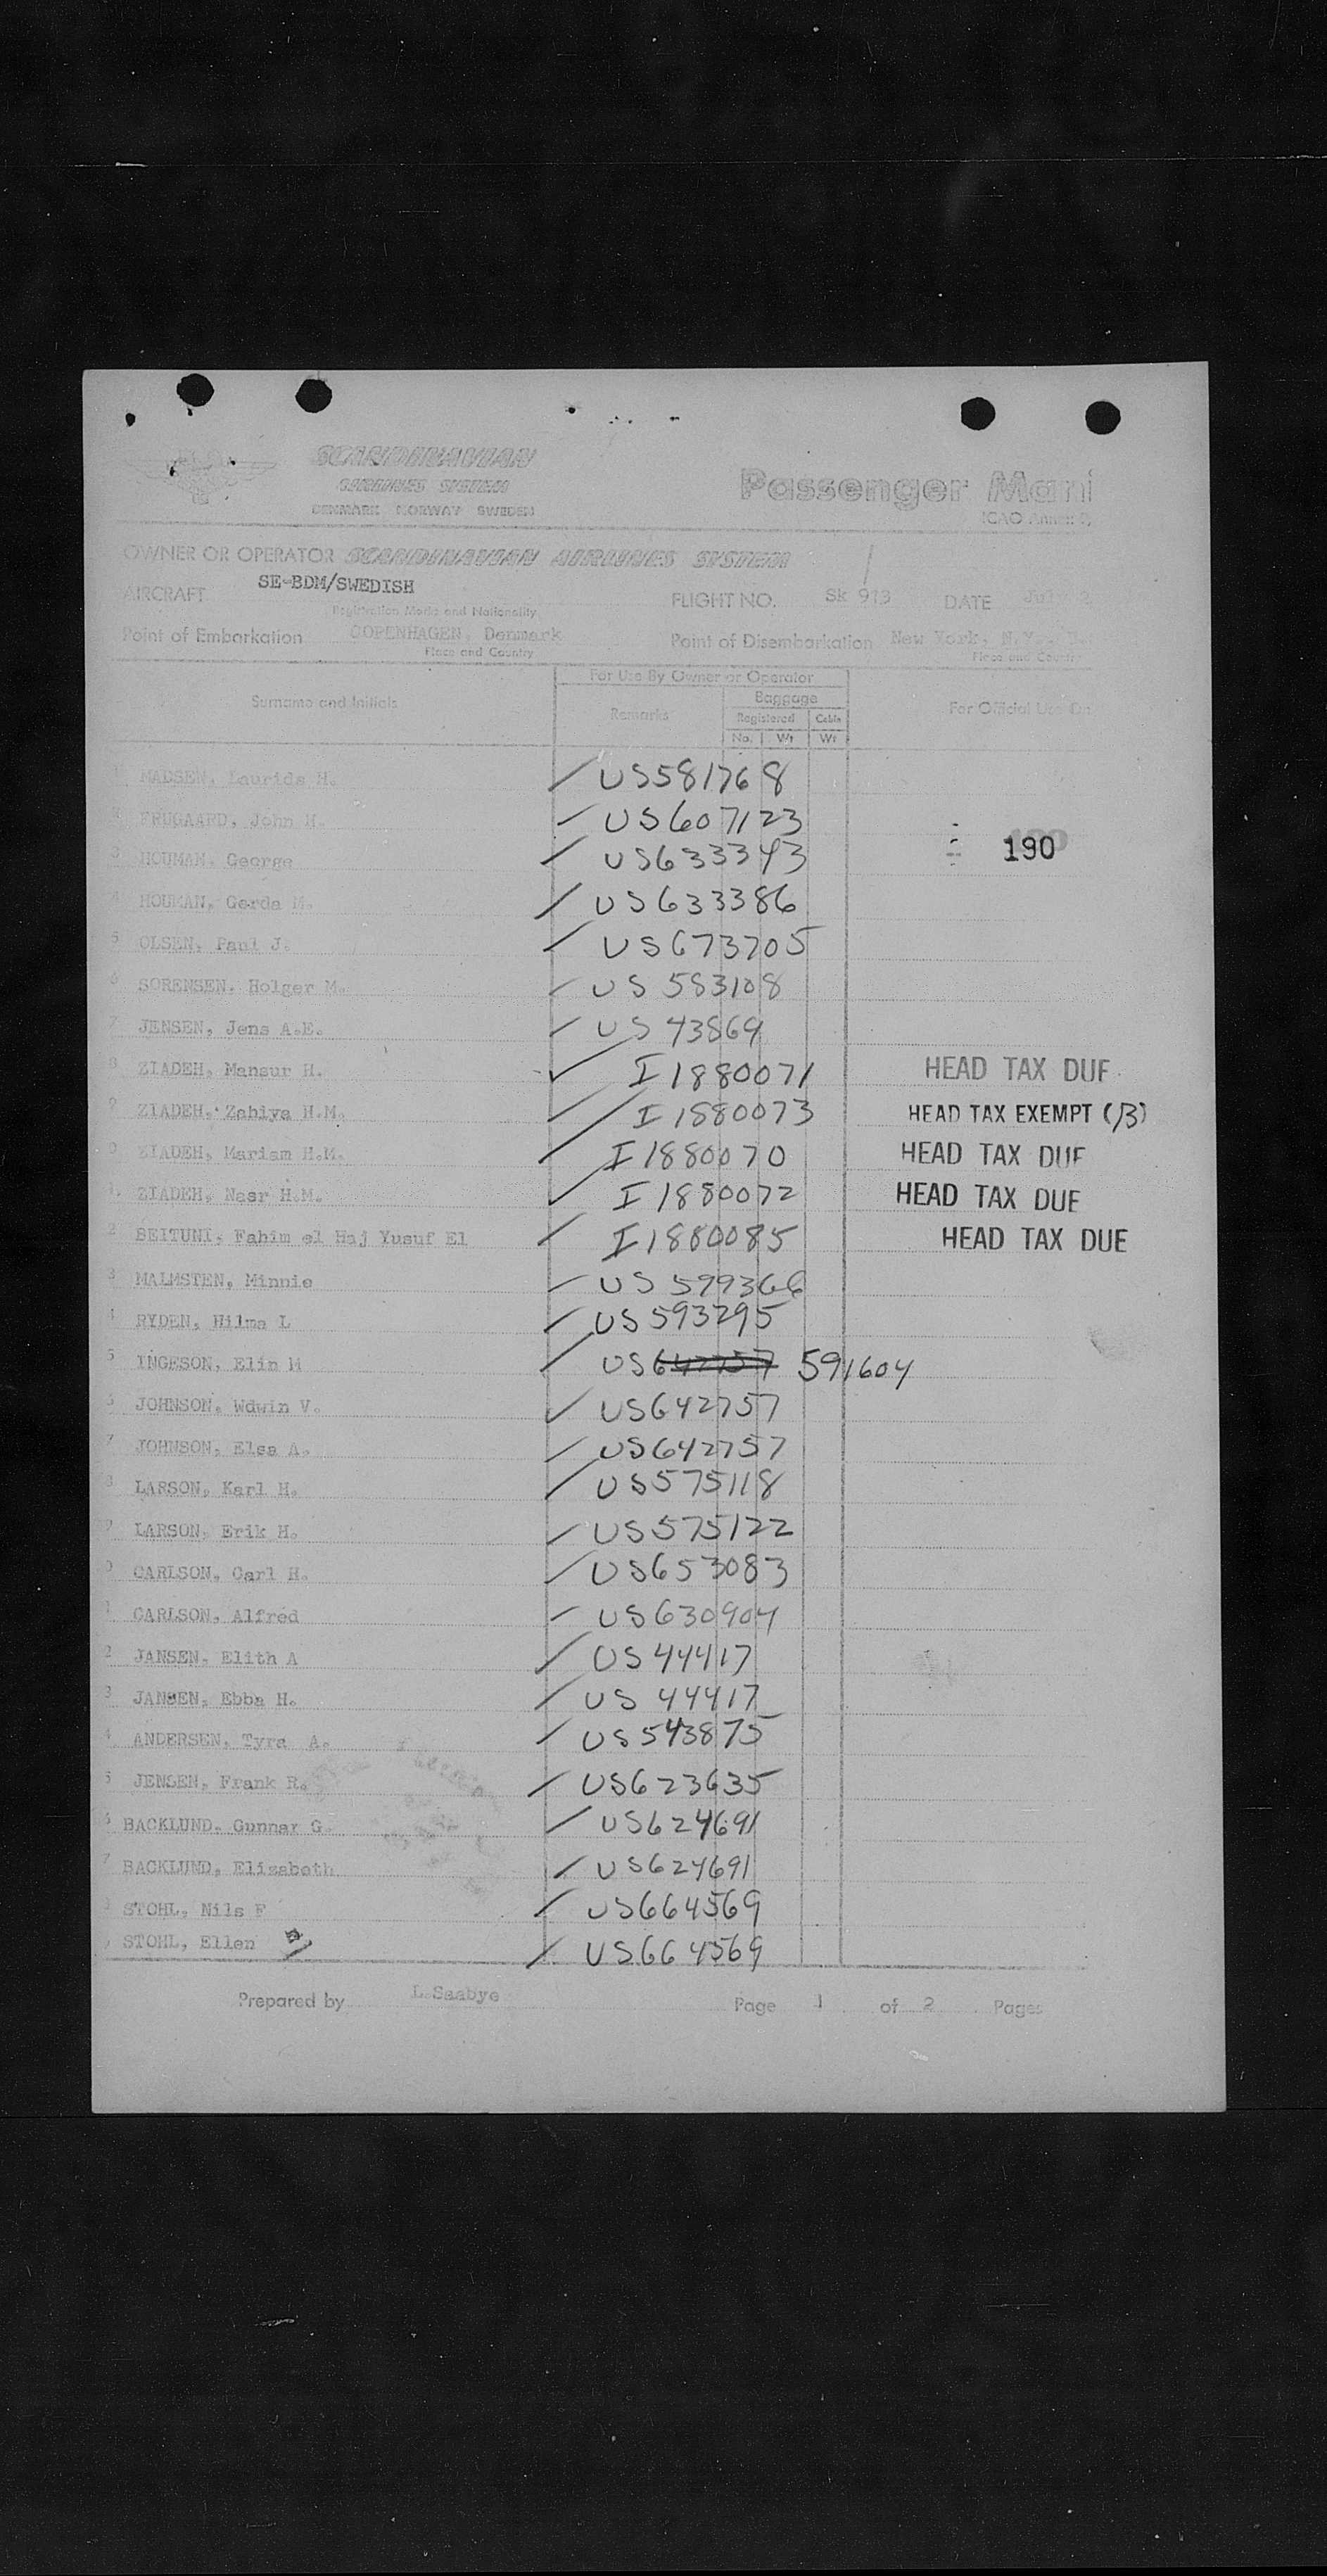 SCANDINAVIAN
AIRLINES SYSTEM
DENMARK NORWAY SWEDEN
Passenger Mani
ICAO Annex 9,
OWNER OR OPERATOR SCANDINAVIAN AIRLINES SYSTEM
AIRCRAFT SE-BDM/SWEDISH FLIGHT NO. Sk 913 DATE July 2
Registration Marks and Nationality
Point of Embarkation COPENHAGEN, Denmark Point of Disembarkation New York, N.Y.,
Place and Country Place and Country
For Use By Owner or Operator
Surname and Initials Remarks Baggage For Official Use On
Registered Cabin
No. Wt Wt
1 MADSEN, Laurids H. US581768
FRUGAARD, John H. US607123
190
3 HOUMAN, George US633343
4 HOUMAN, Gerda M. US633386
5 OLSEN, Paul J. US673705
6 SORENSEN, Holger M. US 583108
7 JENSEN, Jens A.E. US 43869
8 ZIADEH, Mansur H. I 1880071 HEAD TAX DUE
9 ZIADEH, Zahiya H.M. I 1880073 HEAD TAX EXEMPT (13)
0 ZIADEH, Mariam H.M. I 1880070 HEAD TAX DUE
1. ZIADEH, Nasr H.M. I 1880072 HEAD TAX DUE
2 BEITUNI, Fahim el Haj Yusuf El I 1880085 HEAD TAX DUE
3 MALMSTEN, Minnie US 599366
4 RYDEN, Hilma L US 593295
5 INGESON, Elin M US 642757 591604
6 JOHNSON, Wdwin V. US642757
7 JOHNSON, Elsa A. US642757
8 LARSON, Karl H. US575118
9 LARSON, Erik H. US575122
0 CARLSON, Carl H. US653083
1 CARLSON, Alfred US630904
2 JANSEN, Elith A US 44417
3 JANSEN, Ebba H. US 44417
4 ANDERSEN, Tyra A. US543875
5 JENSEN, Frank R. US623635
6 BACKLUND, Gunnar G. US624691
7 BACKLUND, Elisabeth US624691
STOHL, Nils F US664569
STOHL, Ellen US664569
Prepared by L.Saabye Page 1 of 2 Pages